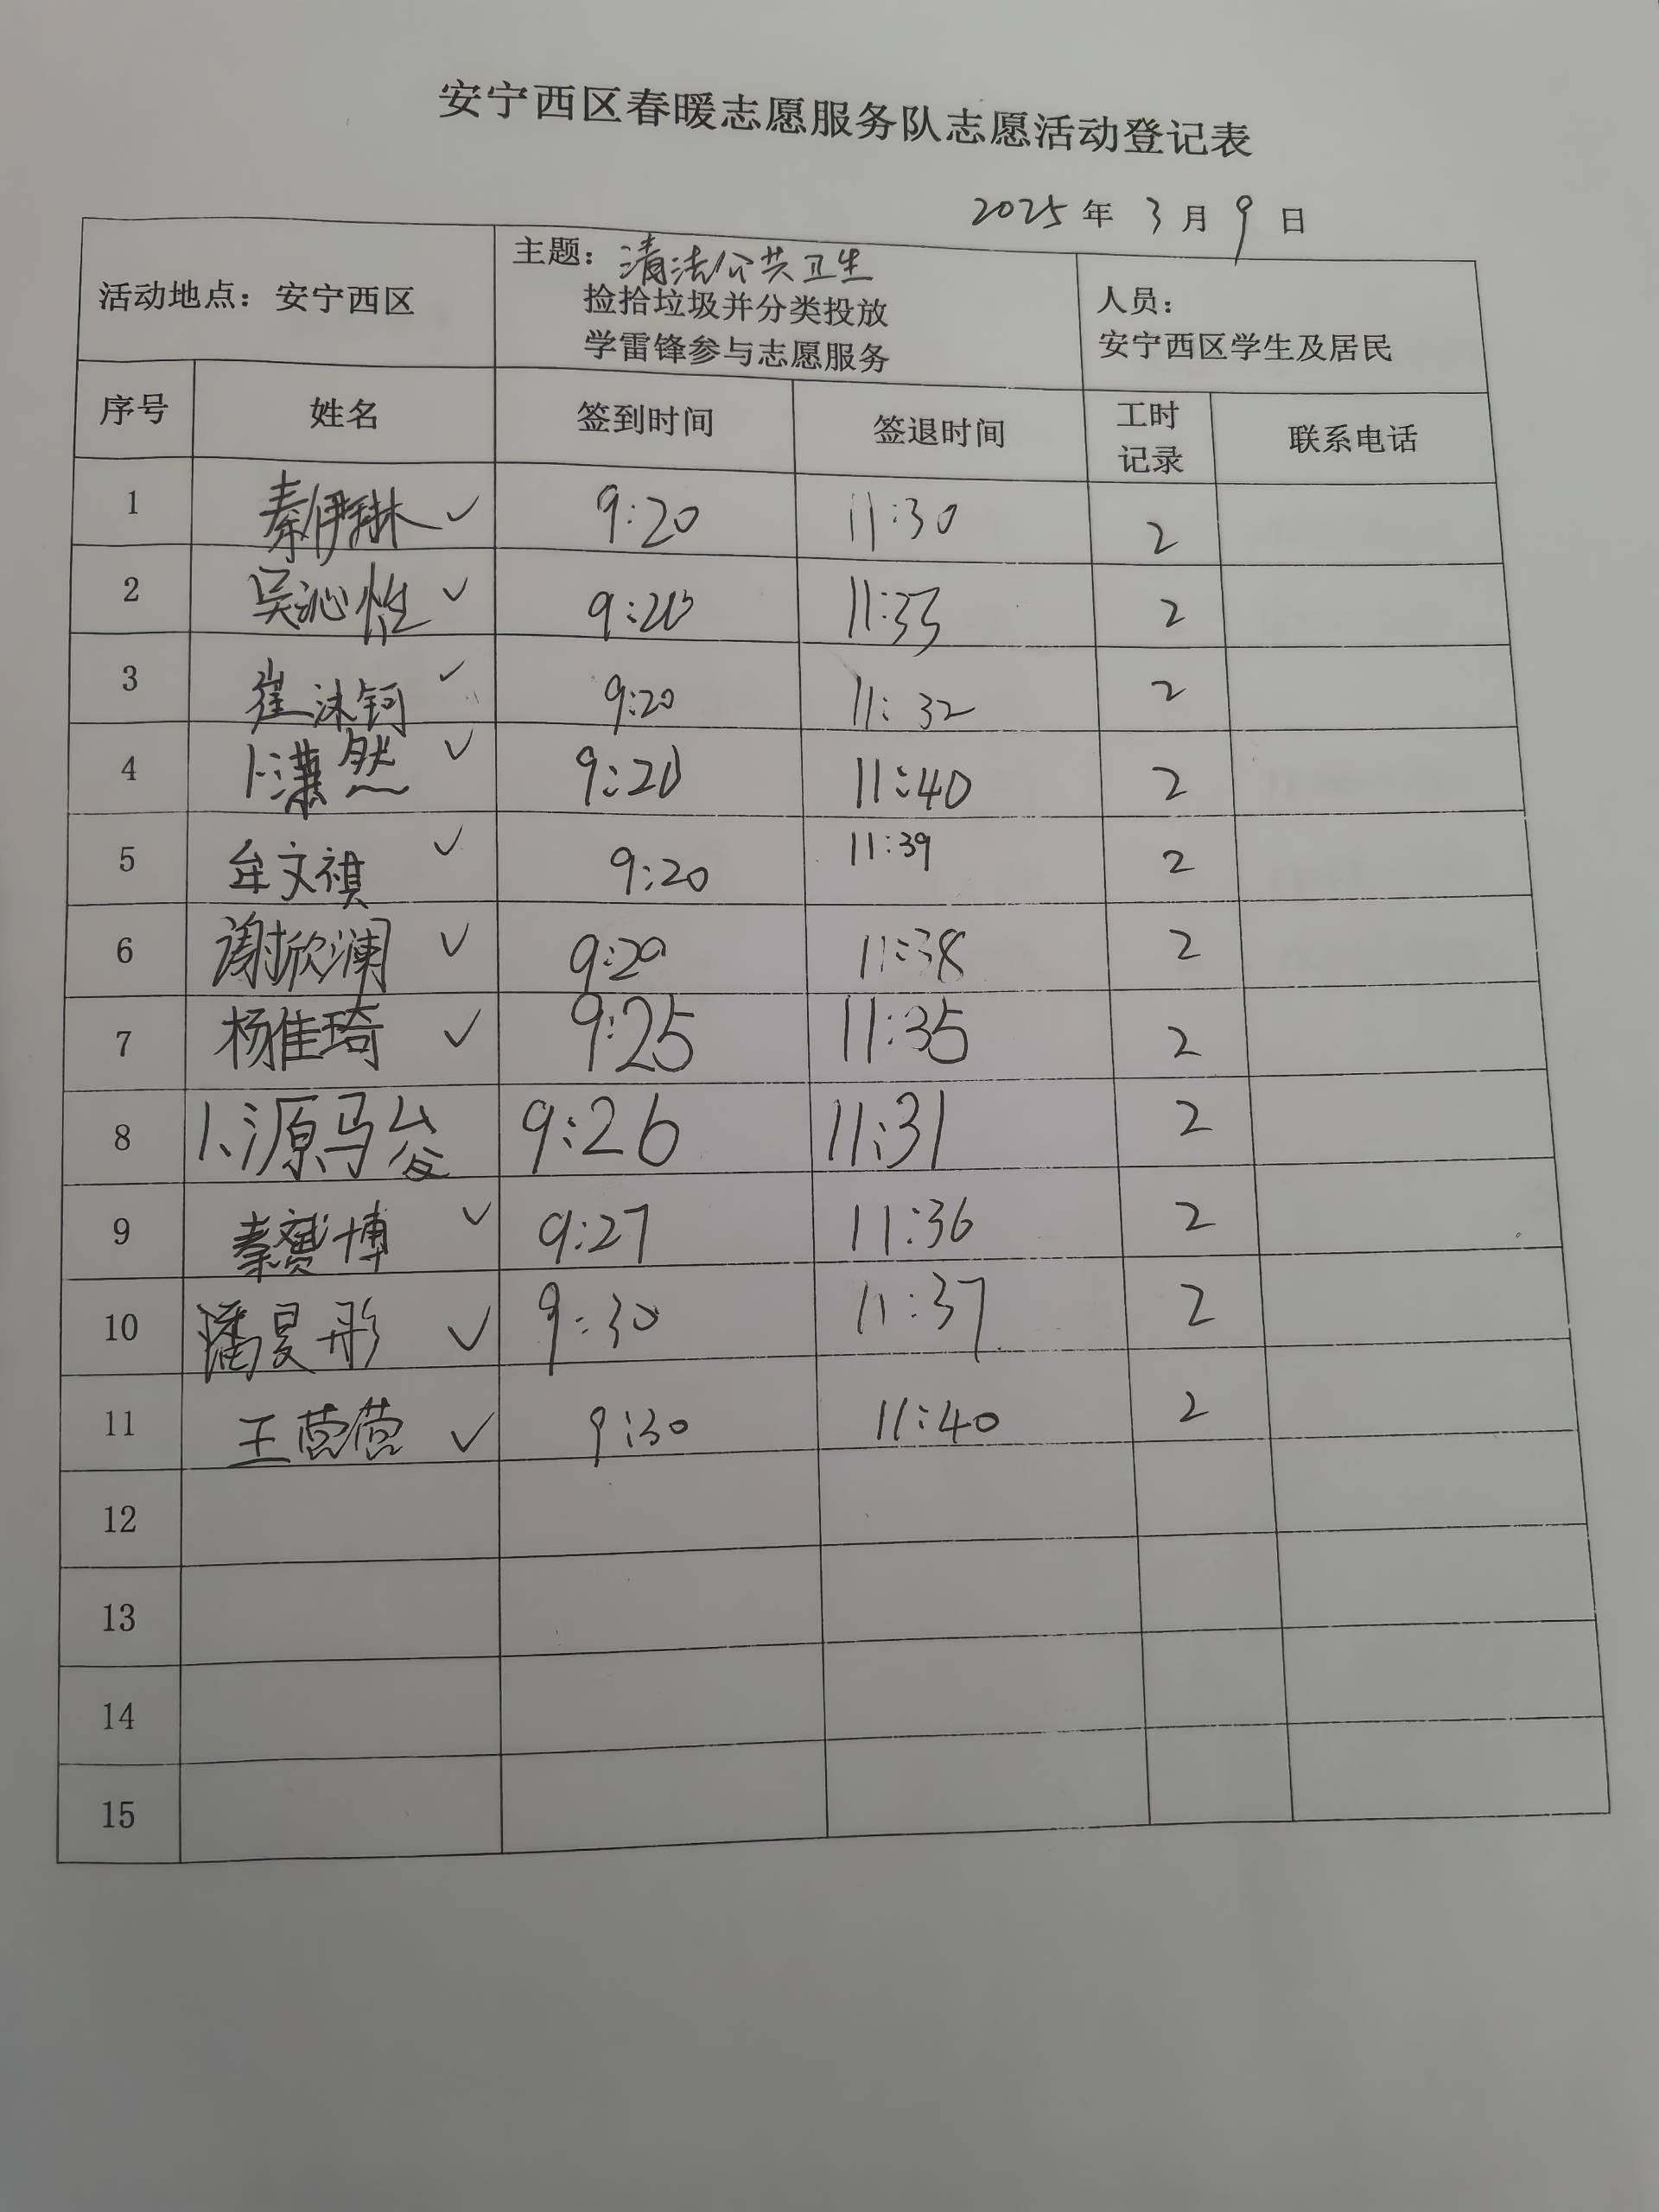 安宁西区春暖志愿服务队志愿活动登记表
2025年 3月 9日
活动地点：安宁西区
主题：清洁公共卫生
捡拾垃圾并分类投放
学雷锋参与志愿服务
人员：
安宁西区学生及居民
序号 姓名 签到时间 签退时间 工时记录 联系电话
1 秦伊琳 ✓ 9:20 11:30 2
2 吴沁怡 ✓ 9:20 11:33 2
3 崔沐钶 ✓ 9:20 11:32 2
4 卜潇然 ✓ 9:20 11:40 2
5 牟文祺 ✓ 9:20 11:39 2
6 谢欣澜 ✓ 9:20 11:38 2
7 杨佳琦 ✓ 9:25 11:35 2
8 卜源 9:26 11:31 2
9 秦赟博 ✓ 9:27 11:36 2
10 潘昱彤 ✓ 9:30 11:37 2
11 王营营 ✓ 9:30 11:40 2
12
13
14
15